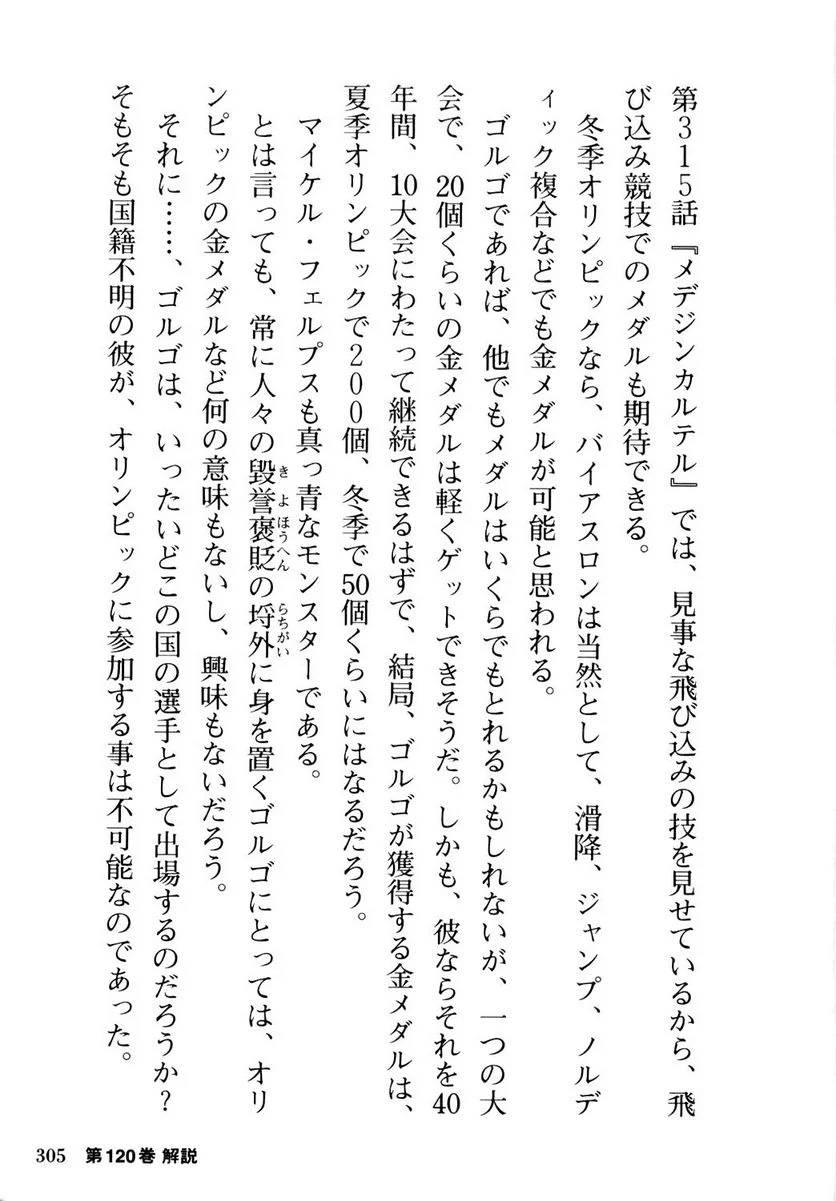 第315話『メデジンカルテル』では、見事な飛び込みの技を見せているから、飛
び込み競技でのメダルも期待できる。
冬季オリンピックなら、バイアスロンは当然として、滑降、ジャンプ、ノルデ
ィック複合などでも金メダルが可能と思われる。
ゴルゴであれば、他でもメダルはいくらでもとれるかもしれないが、一つの大
会で、20個くらいの金メダルは軽くゲットできそうだ。しかも、彼ならそれを40
年間、10大会にわたって継続できるはずで、結局、ゴルゴが獲得する金メダルは、
夏季オリンピックで200個、冬季で50個くらいにはなるだろう。
マイケル・フェルプスも真っ青なモンスターである。
とは言っても、常に人々の毀誉褒貶の埒外に身を置くゴルゴにとっては、オリ
きよほうへん
らちがい
ンピックの金メダルなど何の意味もないし、興味もないだろう。
それに……、ゴルゴは、いったいどこの国の選手として出場するのだろうか?
そもそも国籍不明の彼が、オリンピックに参加する事は不可能なのであった。
305 第120巻 解説